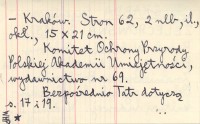 – Kraków. Stron 62, 2 nlb, il.,
okł., 15 x 21 cm.
Komitet Ochrony Przyrody
Polskiej Akademii Umiejętności,
wydawnictwo nr 69.
Bezpośrednio Tatr dotyczą
s. 17 i 19.